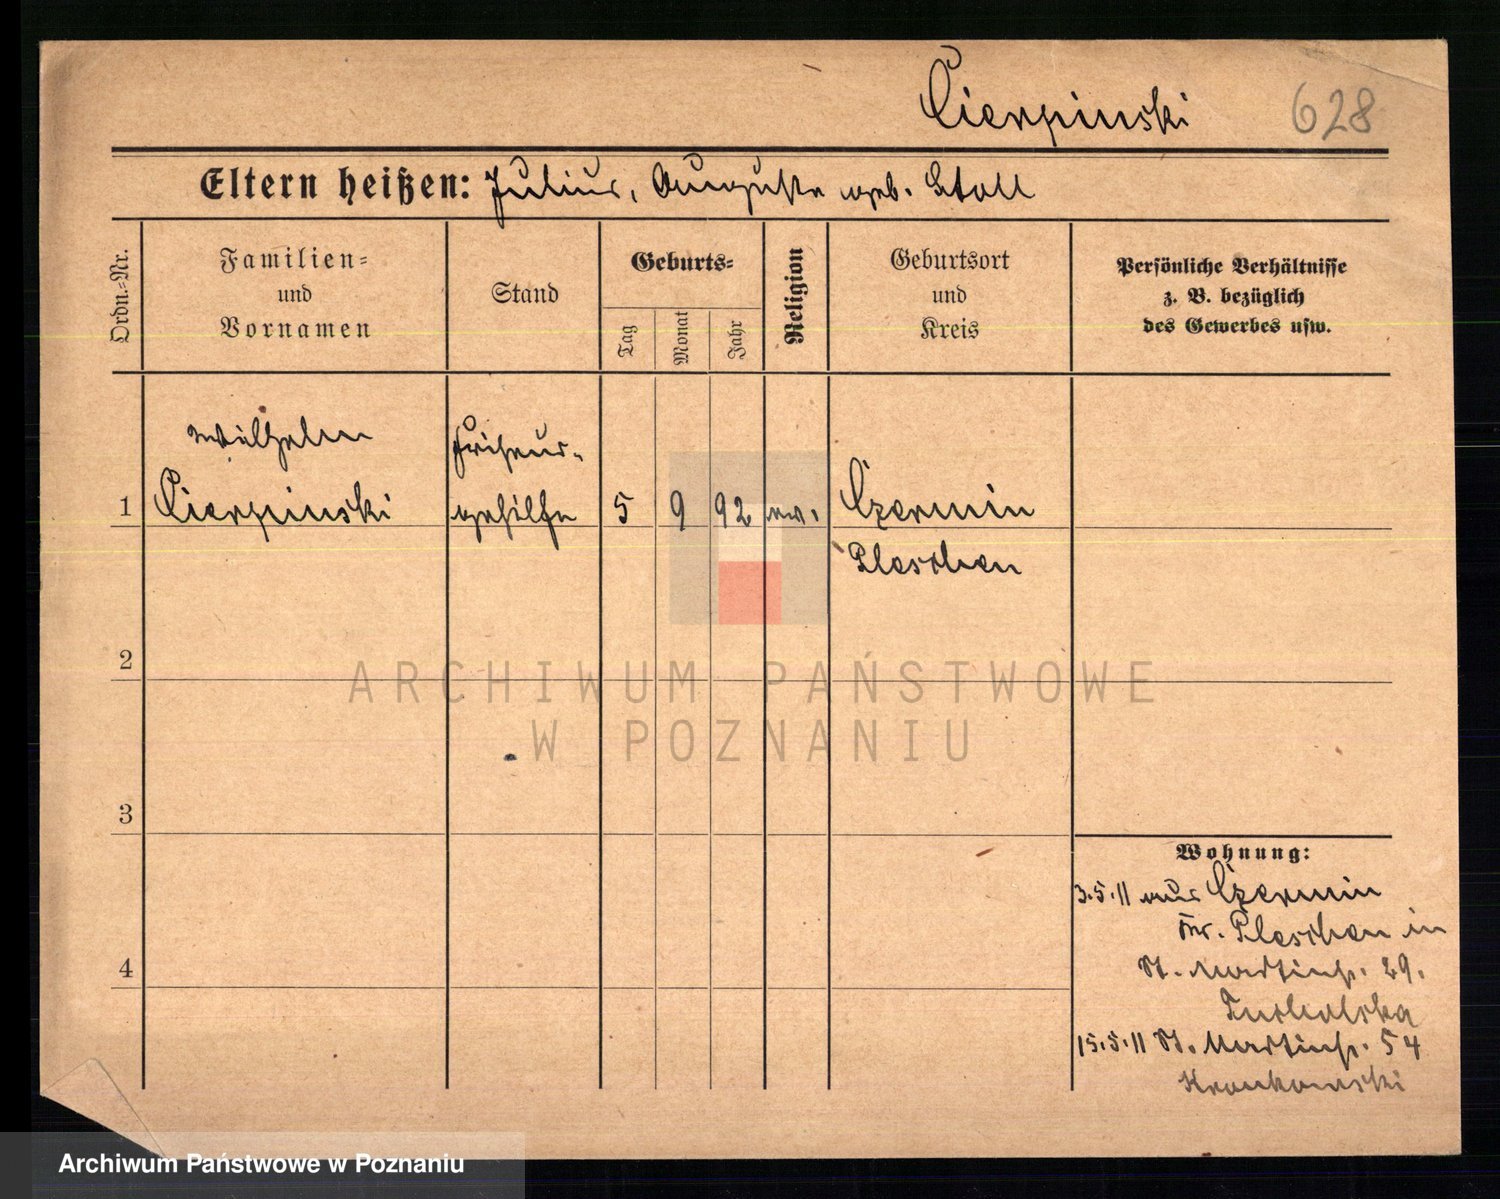 Cierpinski 628
Eltern heißen: Julius, Auguste geb. Stoll
Ordn.-Nr.
Familien-
und
Vornamen
Stand
Geburts-
Tag
Monat
Jahr
Religion
Geburtsort
und
Kreis
Persönliche Verhältnisse
z. B. bezüglich
des Gewerbes usw.
Wilhelm
1 Cierpinski
Friseur-
gehilfe
5 9 92 ev.
Czermin
Pleschen
2
3
4
ARCHIWUM PAŃSTWOWE
W POZNANIU
Wohnung:
3.5.11 aus Czermin
Kr. Pleschen in
St. Martinstr. 29.
15.5.11 St. Martinstr. 54
Archiwum Państwowe w Poznaniu